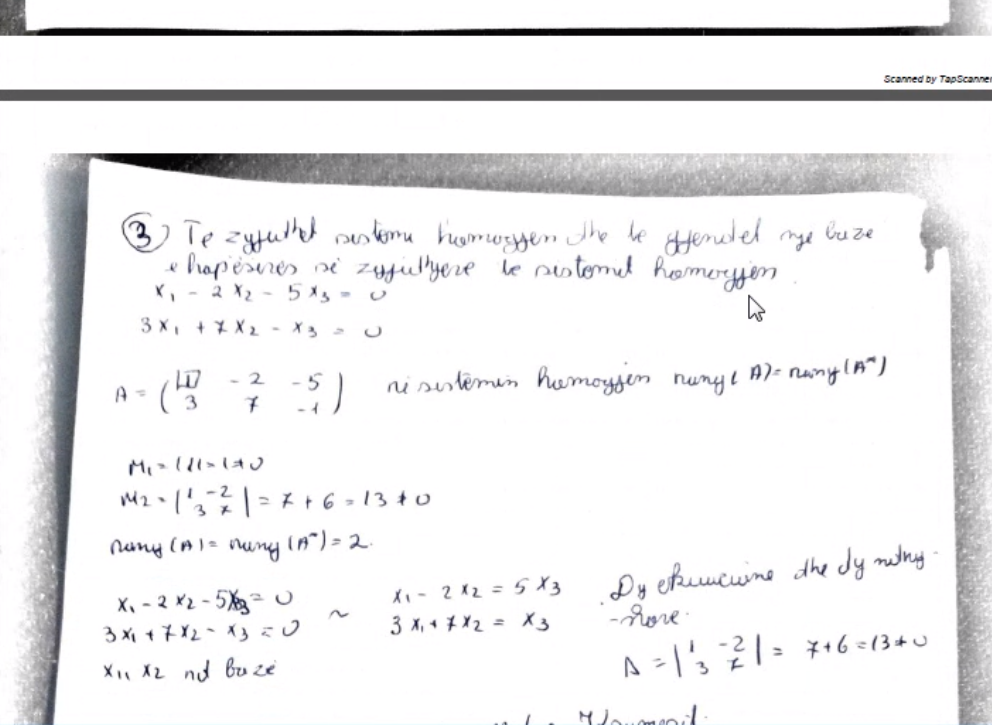 Scanned by TapScanner
③ Te zgjidhet sistemi homogjen dhe te gjendet nje baze
e hapësires së zgjidhjeve te sistemit homogjen.
x₁ - 2x₂ - 5x₃ = 0
3x₁ + 7x₂ - x₃ = 0
A = (1 -2 -5
3 7 -1) në sistemin homogjen rang(A) = rang(A*)
M₁ = |1| = 1 ≠ 0
M2 = |1 -2
3 7| = 7 + 6 = 13 ≠ 0
rang(A) = rang(A*) = 2.
x₁ - 2x₂ - 5x₃ = 0 ~ x₁ - 2x₂ = 5x₃ Dy ekuacione dhe dy
3x₁ + 7x₂ - x₃ = 0 3x₁ + 7x₂ = x₃
x₁, x₂ baze Δ = |1 -2
3 7| = 7+6 = 13 ≠ 0